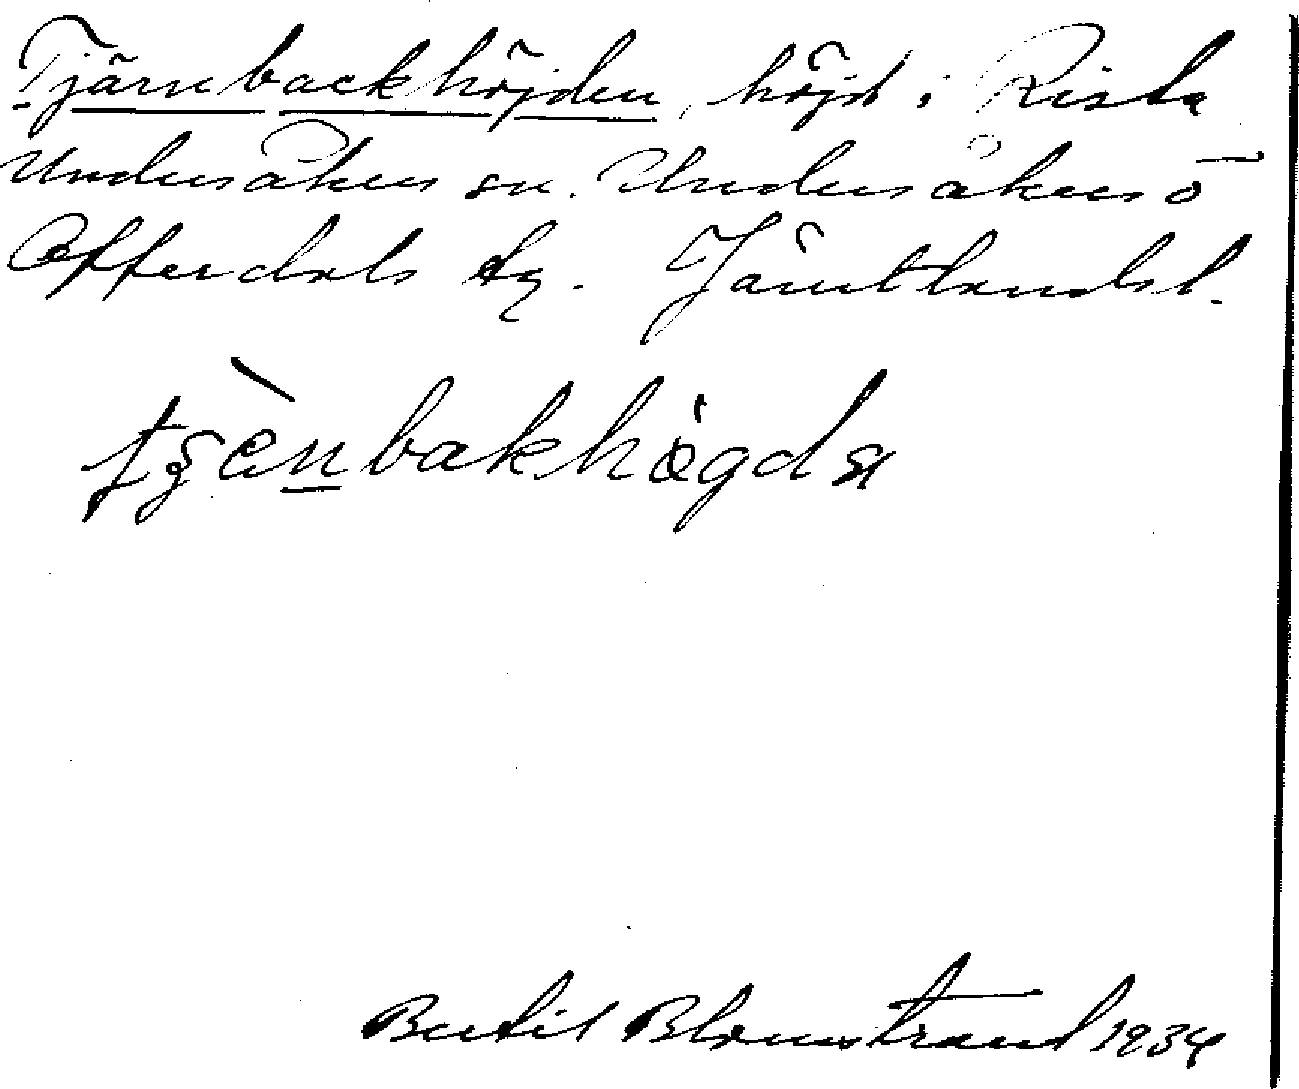 Tjärnbackhöjden, höjd i Rista
Undersåkers sn. Undersåkers o
Offerdals tg. Jämtlands l.
Bertil Blomstrand 1934